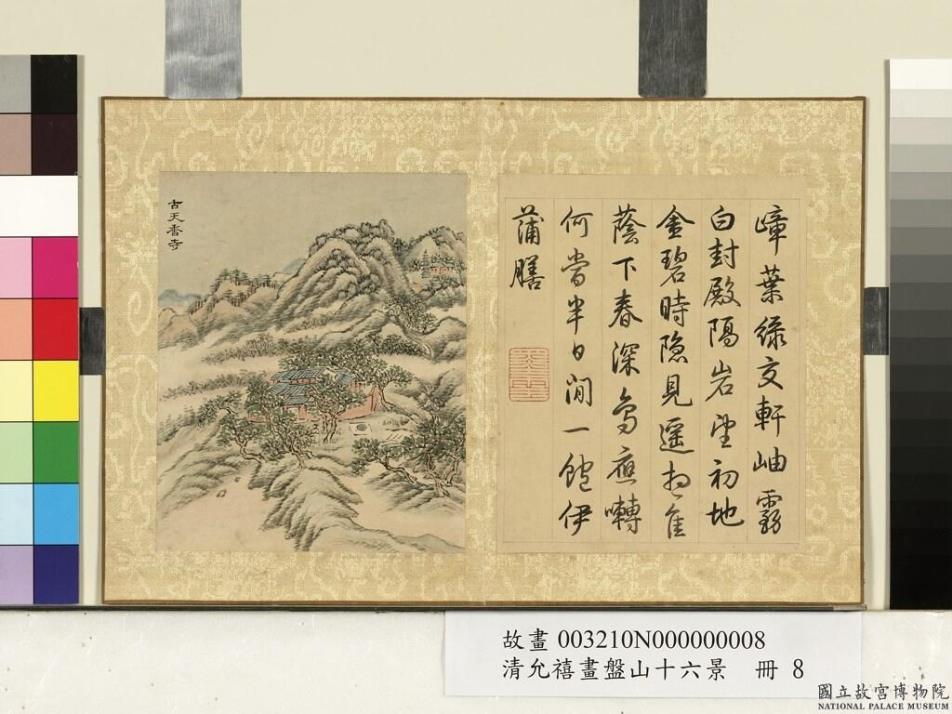 古天香寺
嶂葉綠交軒岫霧
白封殿隔岩望初地
金碧時隱見遥想佳
蔭下春深鳥應囀
何當半日閒一飽伊
蒲膳
故畫 003210N000000008
清允禧畫盤山十六景 冊 8
國立故宮博物院
NATIONAL PALACE MUSEUM